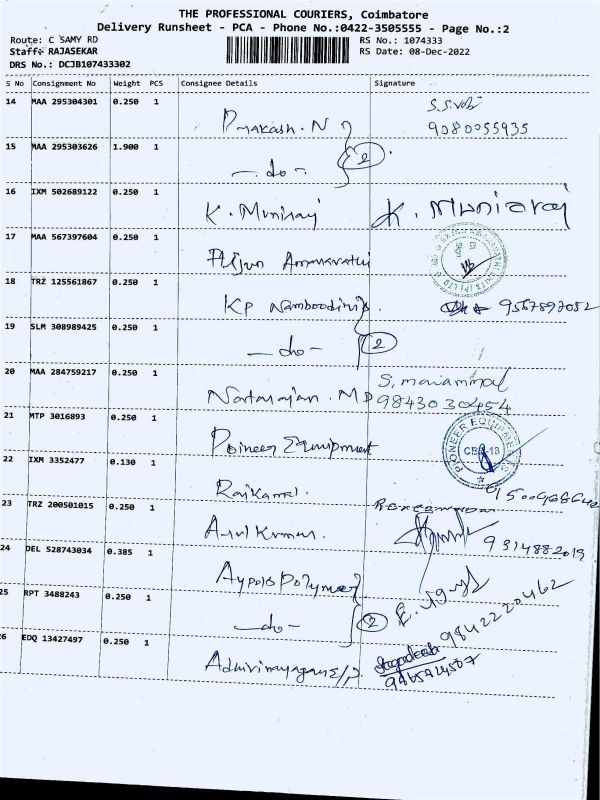 THE PROFESSIONAL COURIERS, Coimbatore
Delivery Runsheet - PCA - Phone No.:0422-3505555 - Page No.:2
Route: C SAMY RD RS No.: 1074333
Staff: RAJASEKAR RS Date: 08-Dec-2022
DRS No.: DCJB107433302
S No Consignment No Weight PCS Consignee Details Signature
14 MAA 295304301 0.250 1
Prakash. N 9080055935
15 MAA 295303626 1.900 1
- do - 2
16 IXM 502689122 0.250 1
K. Muniraj K. Muniaraj
17 MAA 567397604 0.250 1
Arjun Ammavathi
18 TRZ 125561867 0.250 1
KP Namboodiri's 9567897082
19 SLM 308989425 0.250 1
- do - 2
20 MAA 284759217 0.250 1
S. mariammal
Natarajan. MP 9843030454
21 MTP 3016893 0.250 1
Poineer Equipment PIONEER EQUIPMENT
22 IXM 3352477 0.130 1
Rajkamal.
23 TRZ 200501015 0.250 1
Arul Kumar. 9314882019
24 DEL 528743034 0.385 1
Aypols Polymer
25 RPT 3488243 0.250 1
- do - 2 9842220462
26 EDQ 13427497 0.250 1